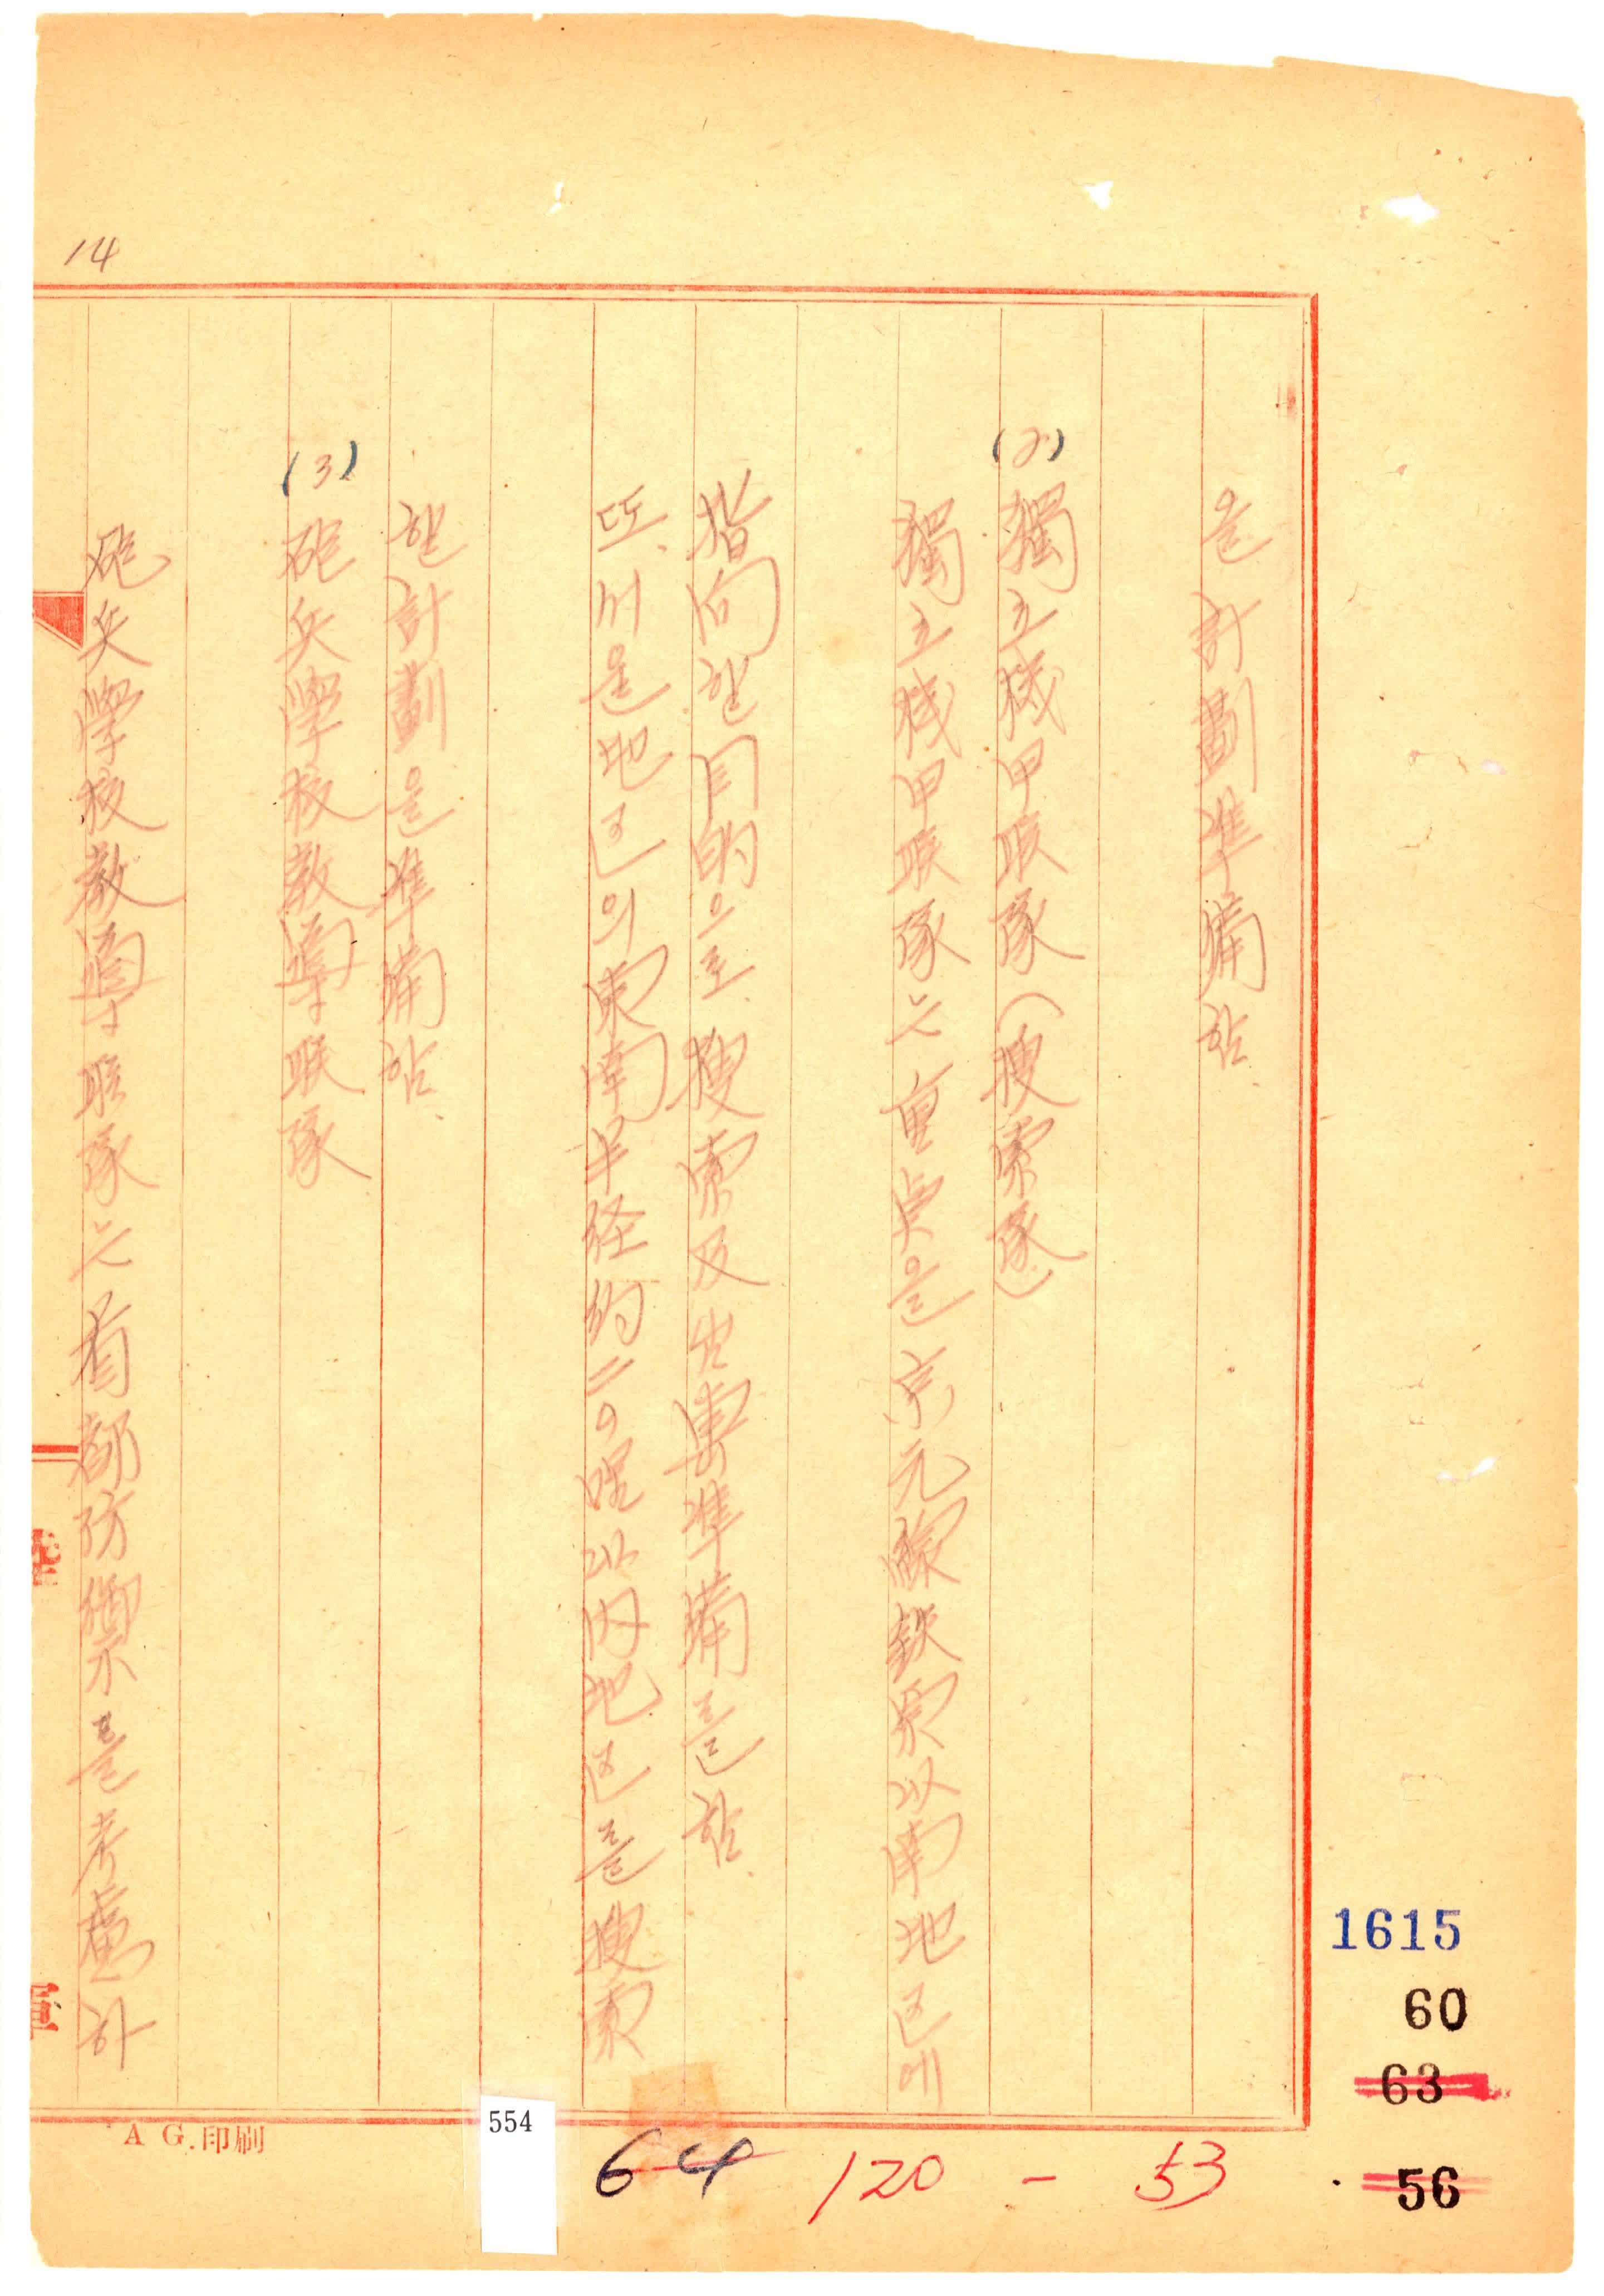 14
을 計劃準備함.
(2) 獨立機甲联隊(搜索隊)
獨立機甲联隊는 重点을 京元線鉄原以南地区에
指向할 目的으로. 搜索及出 準備를 함.
또. 서울地区의 東南半径約二0哩以内地区를 搜索
할 計劃을 準備함.
(3) 砲兵學校敎導联隊
砲兵學校敎導联隊는 首都防禦를 考慮하
1615
60
63
56
A G.印刷
554
64
120 - 53